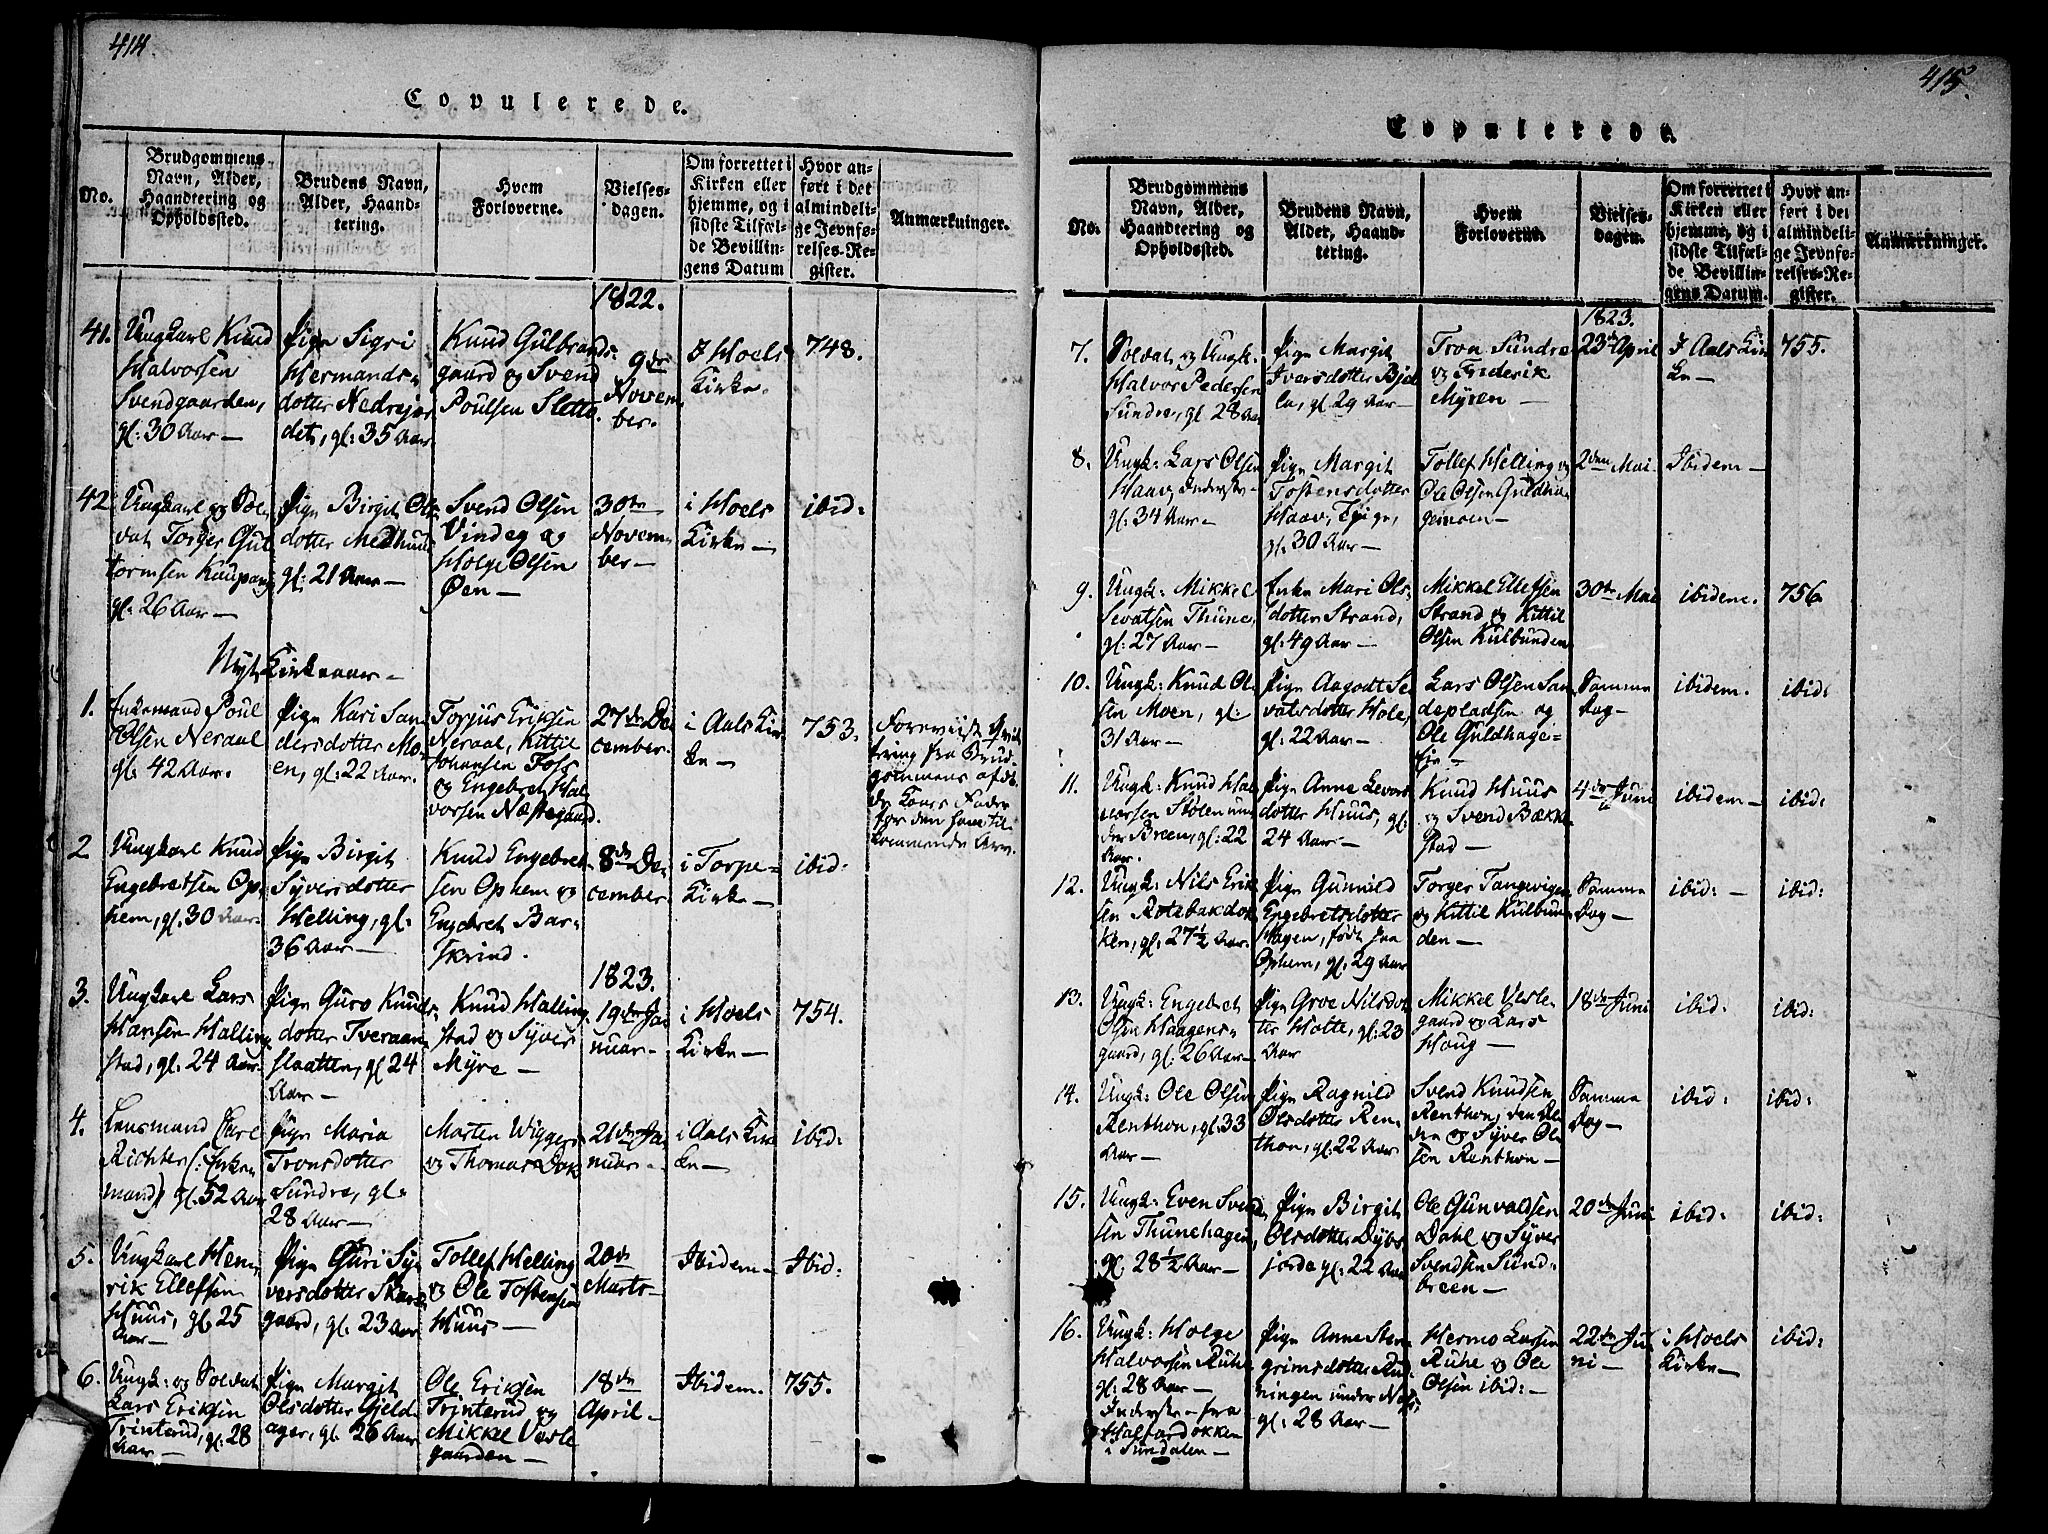 414.
Copulerede.
No.
Brudgommens
Navn, Alder,
Haandtering og
Opholdssted.
Brudens Navn,
Alder, Haand-
tering.
Hvem
Forloverne.
Vielses-
dagen.
Om forrettet i
Kirken eller
hjemme, og i
sidste Tilfæl-
de Bevillin-
gens Datum
Hvor an-
ført i det
almindeli-
ge Jevnfø-
relses-Re-
gister.
Anmærkninger.
1822.
41.
Ungkarl Knud
Halvorsen
Svendgaarden,
gl: 30 Aar —
Pige Sigri
Hermands-
dotter Nedrejor
det, gl: 35 Aar
Knud Gulbrands-
gaard og Svend
Poulsen Slette.
9de
Novem
ber.
I Hoels
Kirke.
748.
42
Ungkarl og Sol
dat Torger Gut
tormsen Kaupang
gl: 26 Aar —
Pige Birgit Ols
dotter Medhuus
gl: 21 Aar —
Svend Olsen
Vindeg og
Holge Olsen
Øen —
30te
Novem-
ber —
i Hoels
Kirke —
ibid:
Nyt Kirkeaar —
1.
Enkemand Poul
Olsen Neraal
gl: 42 Aar.
Pige Kari San
dersdotter Mo-
en, gl: 22 Aar.
Torjus Eriksen
Neraal, Kittil
Johansen Foss
og Engebret Hal
vorsen Næstegaard.
27de De
cember.
i Aals Kir
ke —
753.
Foreviist Qvit
tering fra Brud
gommens afdø
de Kones Fader
for den ham til
kommende Arv.
2
Ungkarl Knud
Engebretsen Op
hem, gl: 30 Aar.
Pige Birgit
Syversdotter
Helling, gl:
36 Aar —
Knud Engebret-
sen Ophem og
Engebret Bar-
skrind.
8de De-
cember
i Torpe-
Kirke —
ibid:
1823.
3.
Ungkarl Lars
Hansen Halling
stad, gl: 24 Aar.
Pige Guro Knuds
dotter Tveraan
slaatten, gl 24
Aar —
Knud Halling
stad og Syver
Myre —
19de Ja
nuar —
i Hoels
Kirke —
754.
4.
Lensmand Carl
Richter (: Enke
mand) gl: 52 Aar
Pige Maria
Tronsdotter
Sundre, gl:
28 Aar —
Morten Wiggers
og Thomas Dok
21de Ja
nuar —
i Aals Kir
ke —
ibid:
5.
Ungkarl Hen
rik Ellefsen
Huus, gl. 25
Aar —
Pige Guri Sy
versdotter Skars
gaard, gl: 23 Aar
Tollef Helling
og Ole Tostensen
Huus —
20de
Marts —
Ibidem —
Ibid:
6.
Ungk: og Soldat
Lars Eriksen
Trinterud, gl: 28
Aar —
Pige Margit
Olsdotter Gjeld
ager, gl. 26 Aar
Ole Eriksen
Trinterud og
Mikkel Vesle
gaarden —
18de
April —
Ibidem.
755.
415.
Copulerede.
No.
Brudgommens
Navn, Alder,
Haandtering og
Opholdssted.
Brudens Navn,
Alder, Haand-
tering.
Hvem
Forloverne.
Vielses-
dagen.
Om forrettet i
Kirken eller
hjemme, og i
sidste Tilfæl-
de Bevillin-
gens Datum.
Hvor an-
ført i det
almindeli-
ge Jevnfø-
relses-Re-
gister.
Anmærkninger.
1823.
7.
Soldat og Ungk:
Halvor Pedersen
Sundre, gl 28 Aar
Pige Margit
Iversdotter Bjel
la, gl. 29 Aar —
Tron Sundre
og Friderik
Myren —
23de April
I Aals Kir
ke —
755.
8.
Ungk: Lars Olsen
Haav Inderste —
gl: 34 Aar —
Pige Margit
Tostensdotter
Haav,
gl. 30 Aar —
Tollef Helling og
Ole Olsen Guldha
gemoen —
2den Mai
Ibidem —
9.
Ungk: Mikkel
Sevatsen Thune,
gl: 27 Aar —
Enke Mari Ols
dotter Strand,
gl: 49 Aar —
Mikkel Ellefsen
Strand og Kittil
Olsen Kulbunden
30te Mai
ibidem.
756
10.
Ungk: Knud Ol
sen Moen, gl:
31 Aar —
Pige Aagodt Se
vatsdotter Hole,
gl: 22 Aar —
Lars Olsen San
depladsen og
Ole Guldhage-
Eie —
Samme
Dag —
ibidem.
ibid:
11.
Ungk: Knud Hal
vorsen Stølen un
der Breen, gl: 22
Aar.
Pige Anne Levors
dotter Huus, gl:
24 Aar —
Knud Huus
og Svend Bække
stad —
4de Juni
ibidem —
ibid:
12.
Ungk: Nils Erik
sen Rotebakdok
ken, gl: 27½ Aar.
Pige Gunnild
Engebretsdotter
Hagen, født paa
Ophem, gl. 29 Aar
Torger Tangevigen
og Kittil Kulbun
den —
Samme
Dag —
ibid: —
ibid:
13.
Ungk: Engebret
Olsen Haagens-
gaard, gl: 26 Aar —
Pige Groe Nilsdot
ter Holte, gl: 23
Aar
Mikkel Vesle-
gaard og Lars
Haug —
18de Juni
ibid:
ibid:
14.
Ungk: Ole Olsen
Renthon, gl: 33
Aar —
Pige Ragnild
Olsdotter Ren
thon, gl: 22 Aar
Svend Knudsen
Renthon,
og Syver Ol
sen Renthon —
Samme
Dag —
ibid:
ibid:
15.
Ungk: Even Svend
sen Thunehagen,
gl: 28½ Aar —
Pige Birgit
Olsdotter Dybs
jorde gl: 22 Aar
Ole Gunvaldsen
Dahl og Syver
Svendsen Sund-
breen —
20de Juni
ibid:
ibid:
16.
Ungk: Holge
Halvorsen Ruhe
gl: 28 Aar —
Inderste — fra
Halfardokken
i Sundalen —
Pige Anne Sten
grimsdotter Rud
ningen under Næs,
gl: 28 Aar —
Hermo Larsen
Ruhe og Ole
Olsen ibid: —
22de Ju
ni —
i Hoels
Kirke —
ibid: